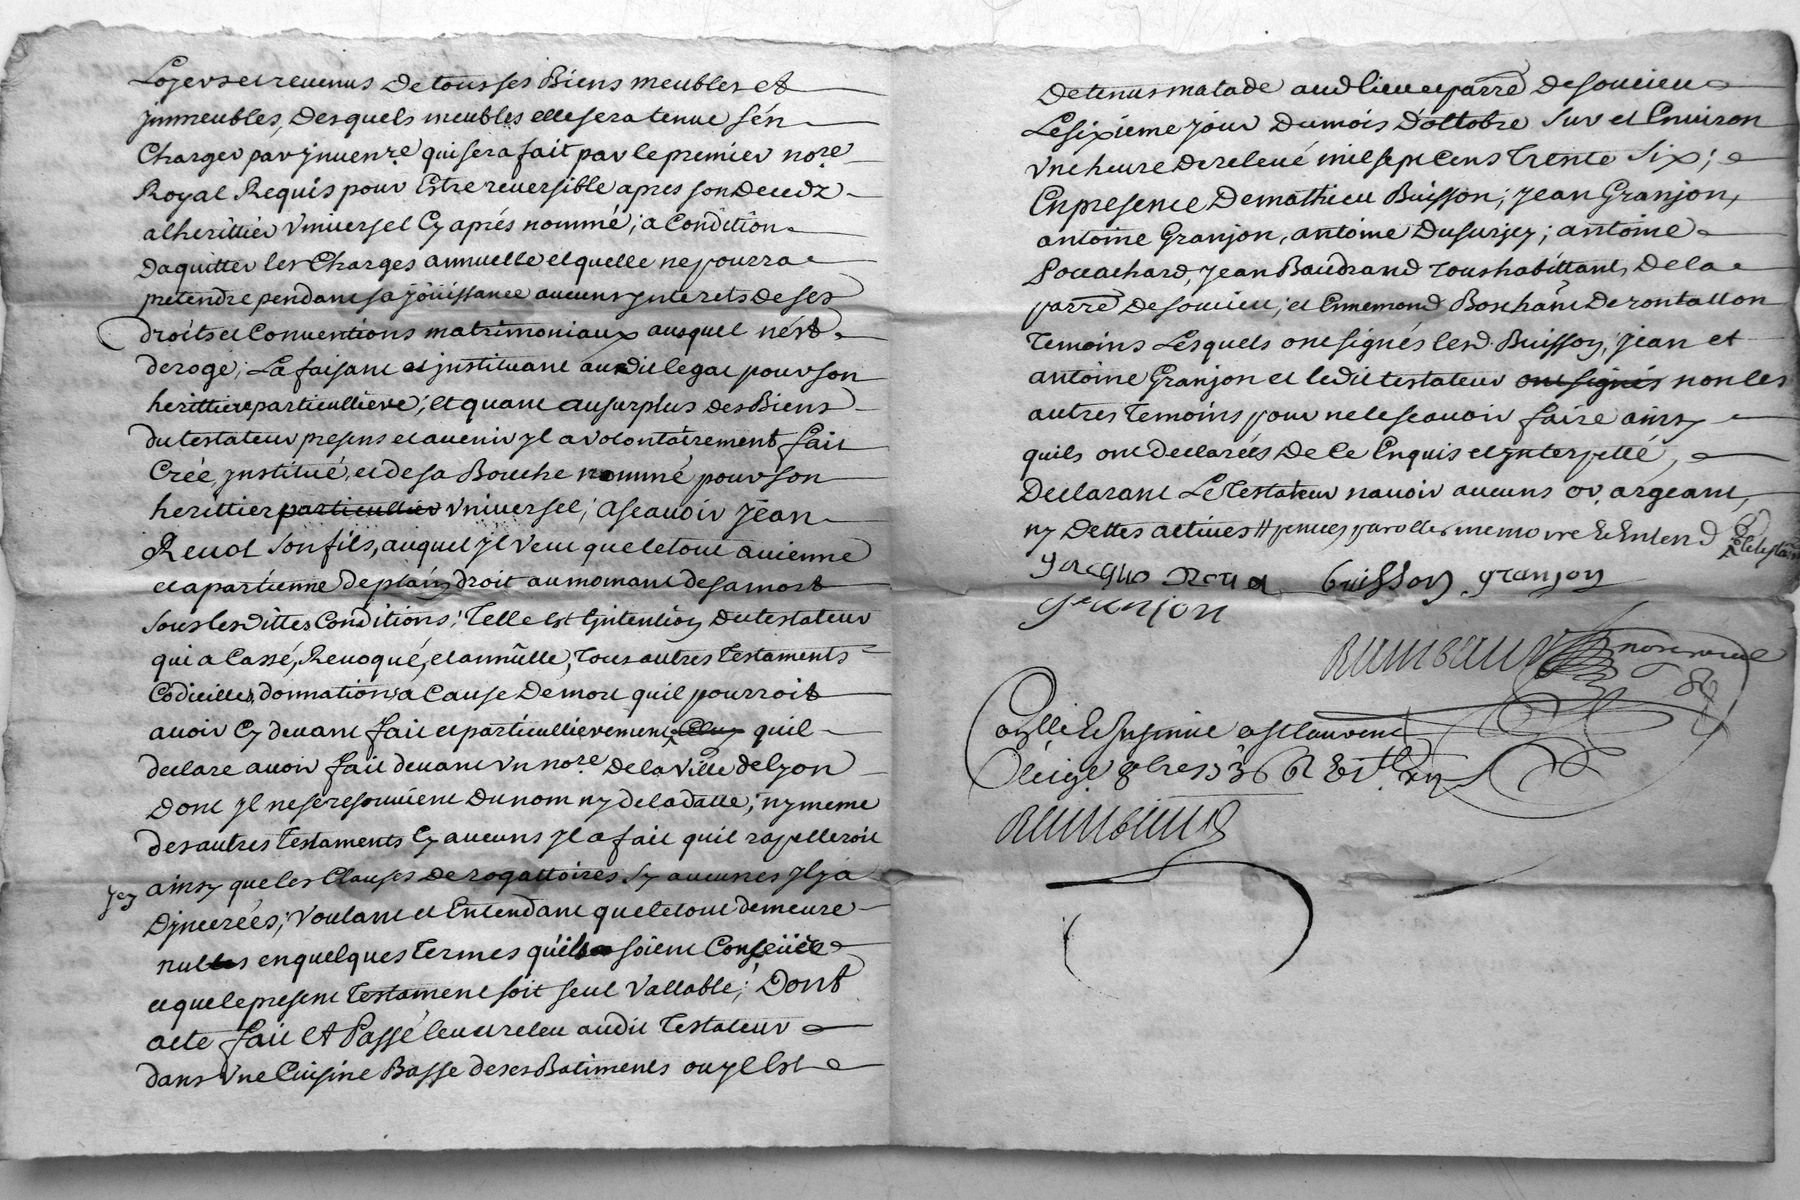 Loyers et revenus De tous ses Biens meubles et
jmmeubles, Desquels meubles elle sera tenue sén
Charger par jnuenre qui sera fait par le premier nore
Royal Requis pour Estre reuersible apres son Decedz
alherittier Vniuersel Cy aprés nommé; a Condition
Daquitter les Charges annuelle et quelle ne pourra
pretendre pendant sa joüissance aucuns ynterets De ses
droits et Conuentions matrimoniaux ausquel nést
derogé; La faisant et jnstituant audit legat pour son
herittiere particulliere; et quant au surplus des Biens
du testateur presens et auenir yl a volontairement fait
Créé, jnstitué, et de sa Bouche nommé pour son
herittier particullier vniuersel; ascauoir Jean
Reuol son fils, auquel yl veut que le tout auienne
et apartienne De plain droit au momant de sa mort
sous les dittes Conditions; Telle Est Lintention Du testateur
qui a Cassé, Reuoqué, et annulle, tous autres Testaments
Codicilles, donnations a Cause De mort quil pourroit
auoir Cy deuant fait et particullierement quil
declare auoir fait deuant vn nore De la Ville de lyon
Dont yl ne se resouuient Du nom ny de la datte; ny meme
des autres Testaments Cy aucuns yl a fait quil rapelleroit
ainsy que les Clauses Derogattoires sy aucunes yl y a
Djnserées; Voulant et Entendant que le tout demeure
nuls en quelques termes quils soient Conseües
et que le present Testament soit seul Vallable; Dont
acte fait et Passé audit Testateur
dans Vne Cuisine Basse de ses Batiments ou yl Est
Detenus malade aud lieu et parre De soucieu
Le sixieme jour Du mois D'octobre sur et Enuiron
vne heure De releué mil sept Cens Trente Six;
En presence De mathieu Buisson; Jean Granjon,
antoine Granjon, antoine Dusurjey; antoine
Jean Baudrand tous habittants De la
parre De soucieu; et Ennemond De rontallon
Temoins Lesquels ont signés led. Buisson; Jean et
antoine Granjon et ledit testateur ont signés non les
autres Temoins pour ne le scauoir faire ainsy
quils ont declarés De Ce Enquis et ynterpellé,
Declarant Le Testateur nauoir aucuns or, argeant,
ny Dettes actiues
Buisson granjon
granjon
Raimbaud
Raimbaud